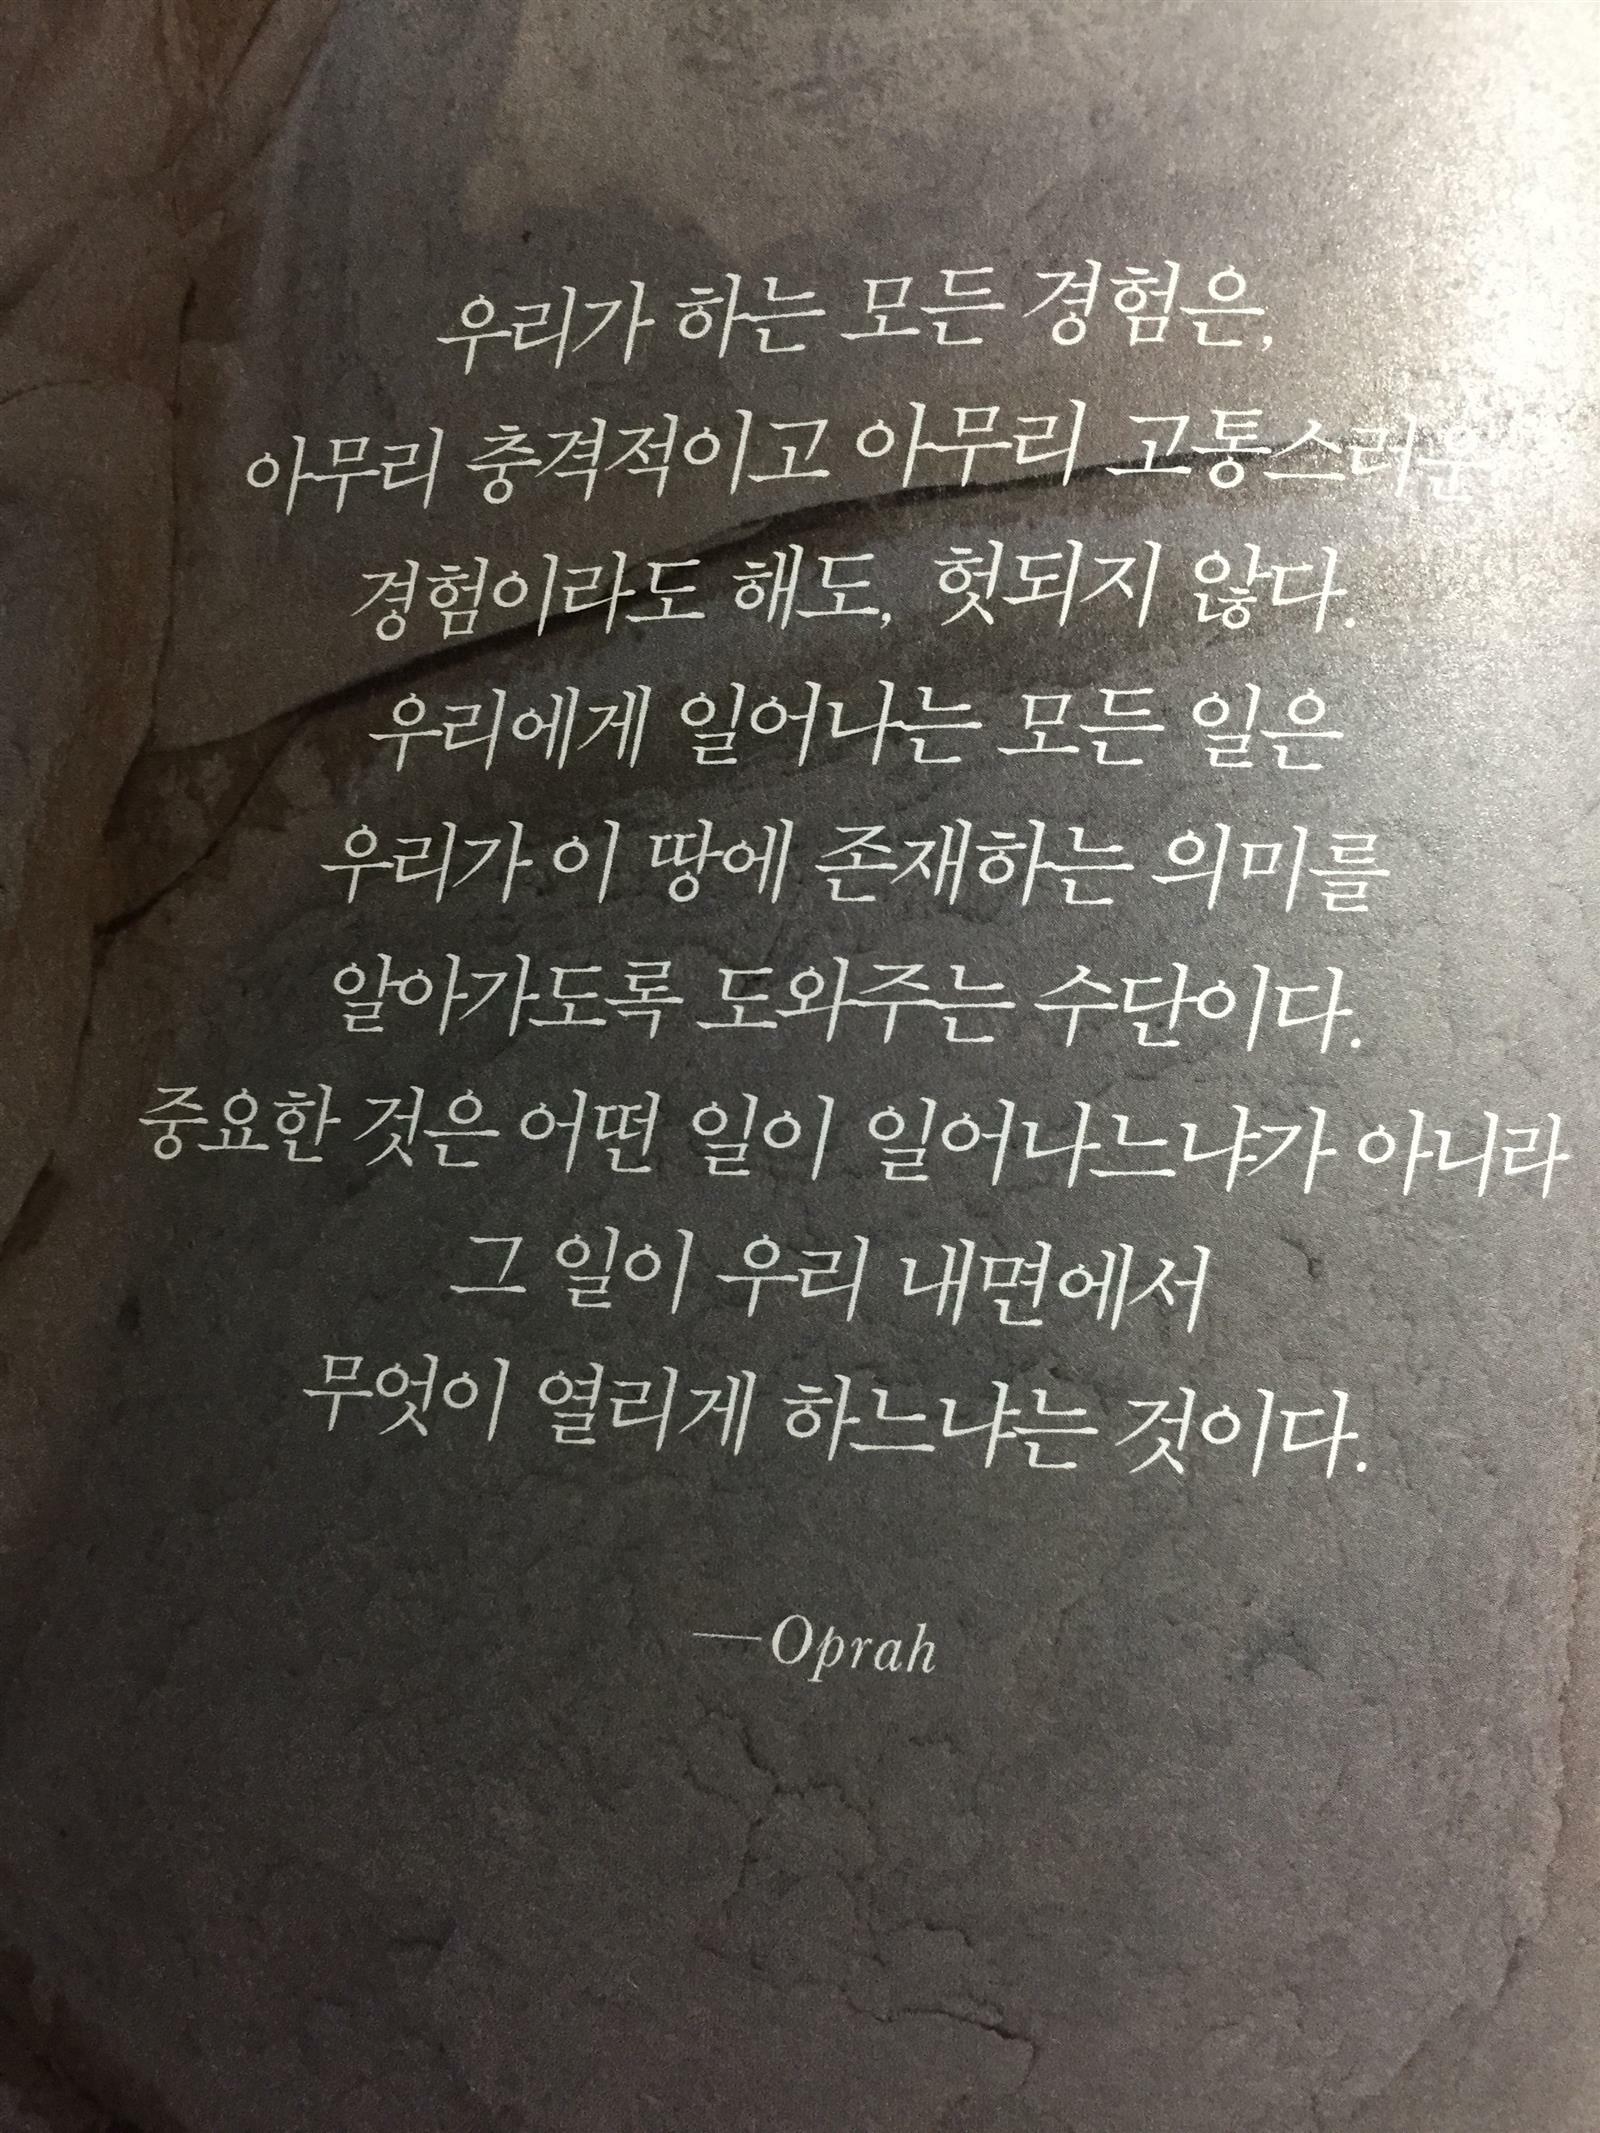 우리가 하는 모든 경험은,
아무리 충격적이고 아무리 고통스러운
경험이라도 해도, 헛되지 않다.
우리에게 일어나는 모든 일은
우리가 이 땅에 존재하는 의미를
알아가도록 도와주는 수단이다.
중요한 것은 어떤 일이 일어나느냐가 아니라
그 일이 우리 내면에서
무엇이 열리게 하느냐는 것이다.
—Oprah